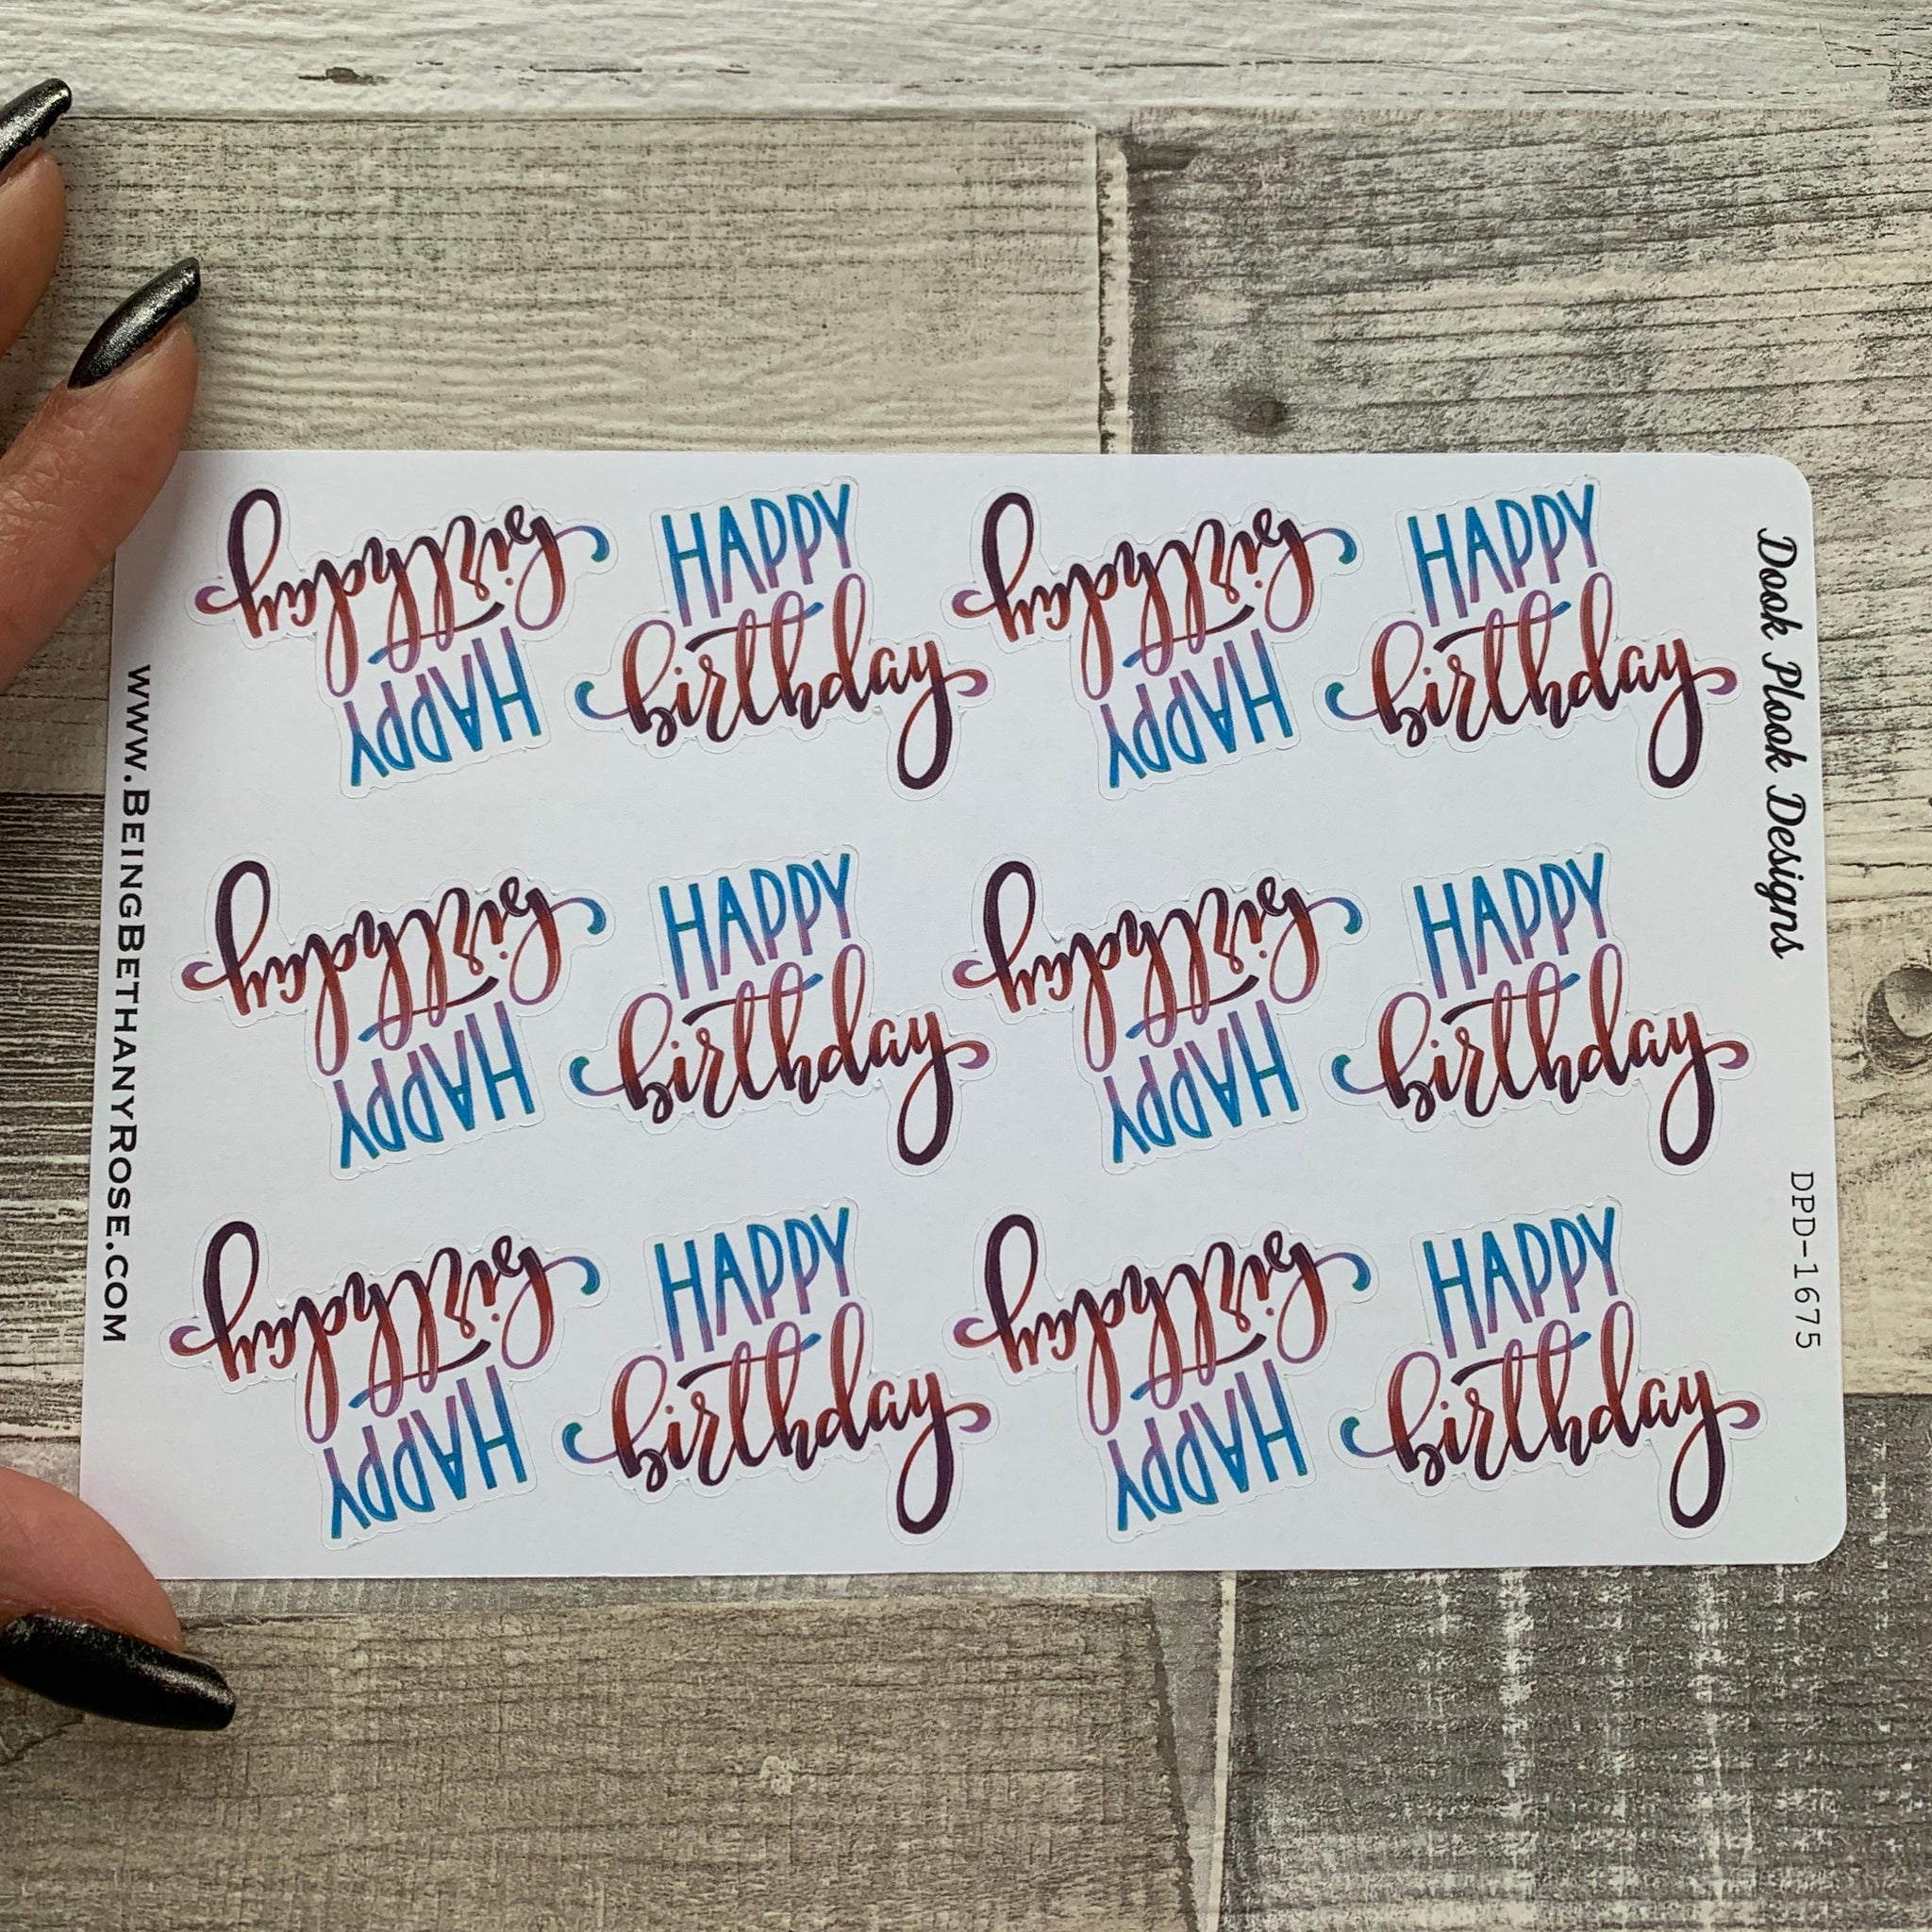 birthday
HAPPY
HAPPY
birthday
birthday
HAPPY
HAPPY
birthday
birthday
HAPPY
HAPPY
birthday
birthday
HAPPY
HAPPY
birthday
birthday
HAPPY
HAPPY
birthday
birthday
HAPPY
HAPPY
birthday
www.BeingBethanyRose.com
Dook Plook Designs
DPD-1675